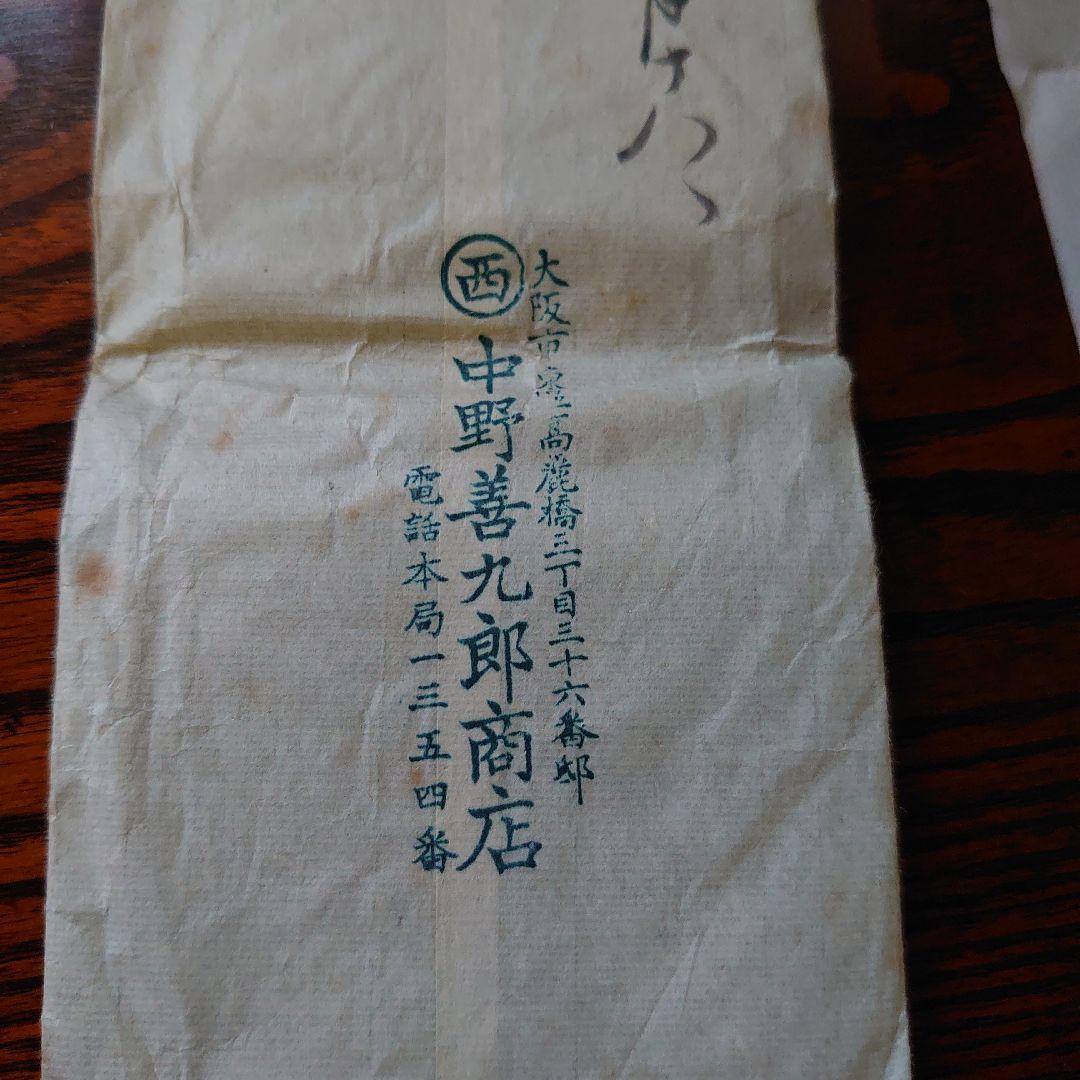 月十八
大阪市東區高麗橋三丁目三十六番邸
西
中野善九郎商店
電話本局一三五四番